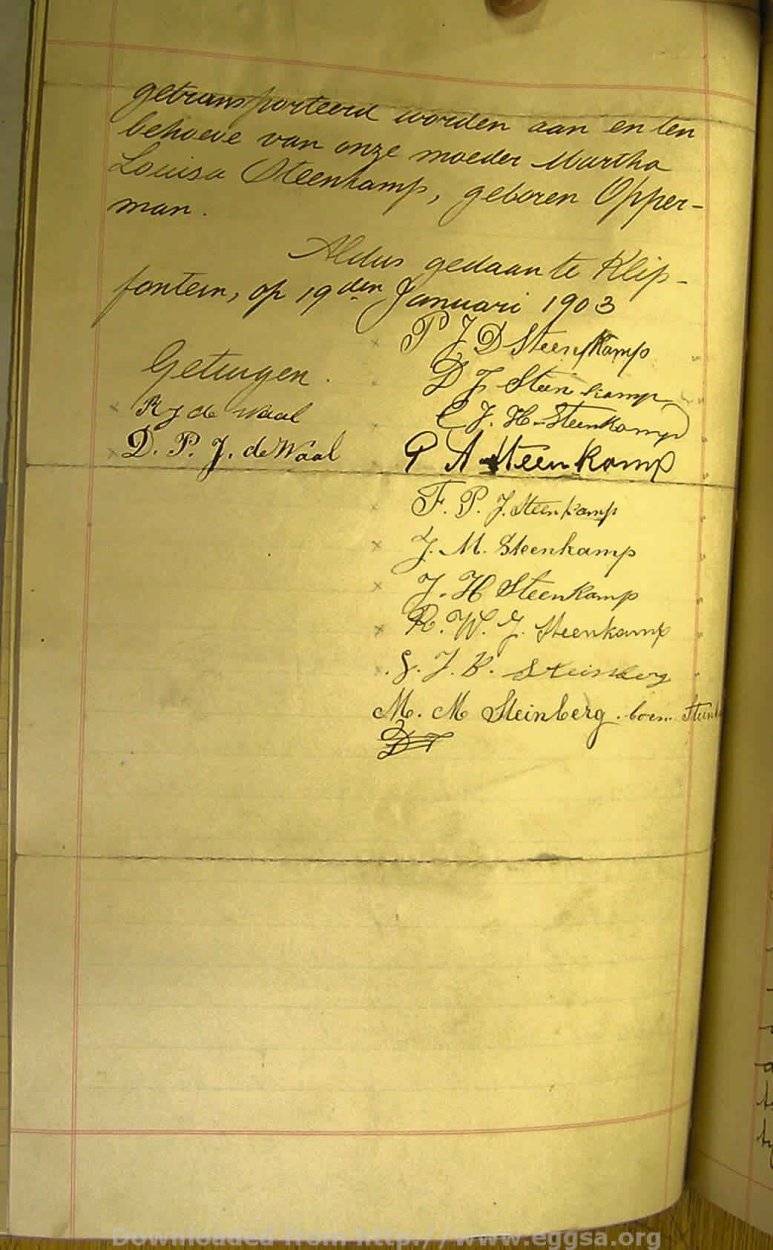 getransporteerd worden aan en ten
behoeve van onze moeder Martha
Louisa Steenkamp, geboren Opper-
man.
Aldus gedaan te Klip-
fontein, op 19den Januari 1903
P J D Steenkamp
Getuigen.
D J Steenkamp
R J de Waal
C J. H. Steenkamp
D. P. J. de Waal
P A Steenkamp
F. P. J. Steenkamp
J. M. Steenkamp
J. H Steenkamp
R. W. J. Steenkamp
J. B. Steinberg
M. M Steinberg
Downloaded from http://www.eggsa.org